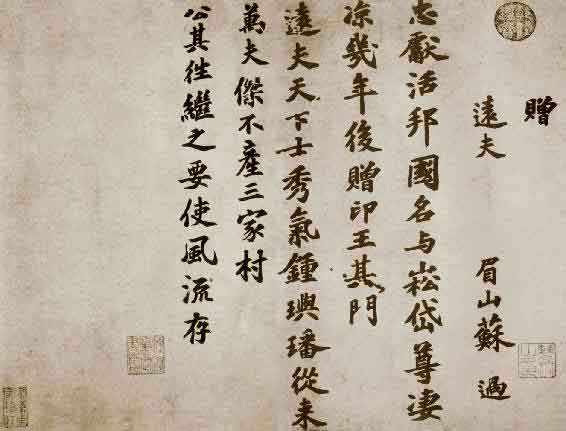 贈
遠夫 眉山蘇過
忠獻活邦國名与崧岱尊凄
凉幾年後贈印王其門
遠夫天下士秀氣鍾璵璠從来
萬夫傑不產三家村
公其徃繼之要使風流存